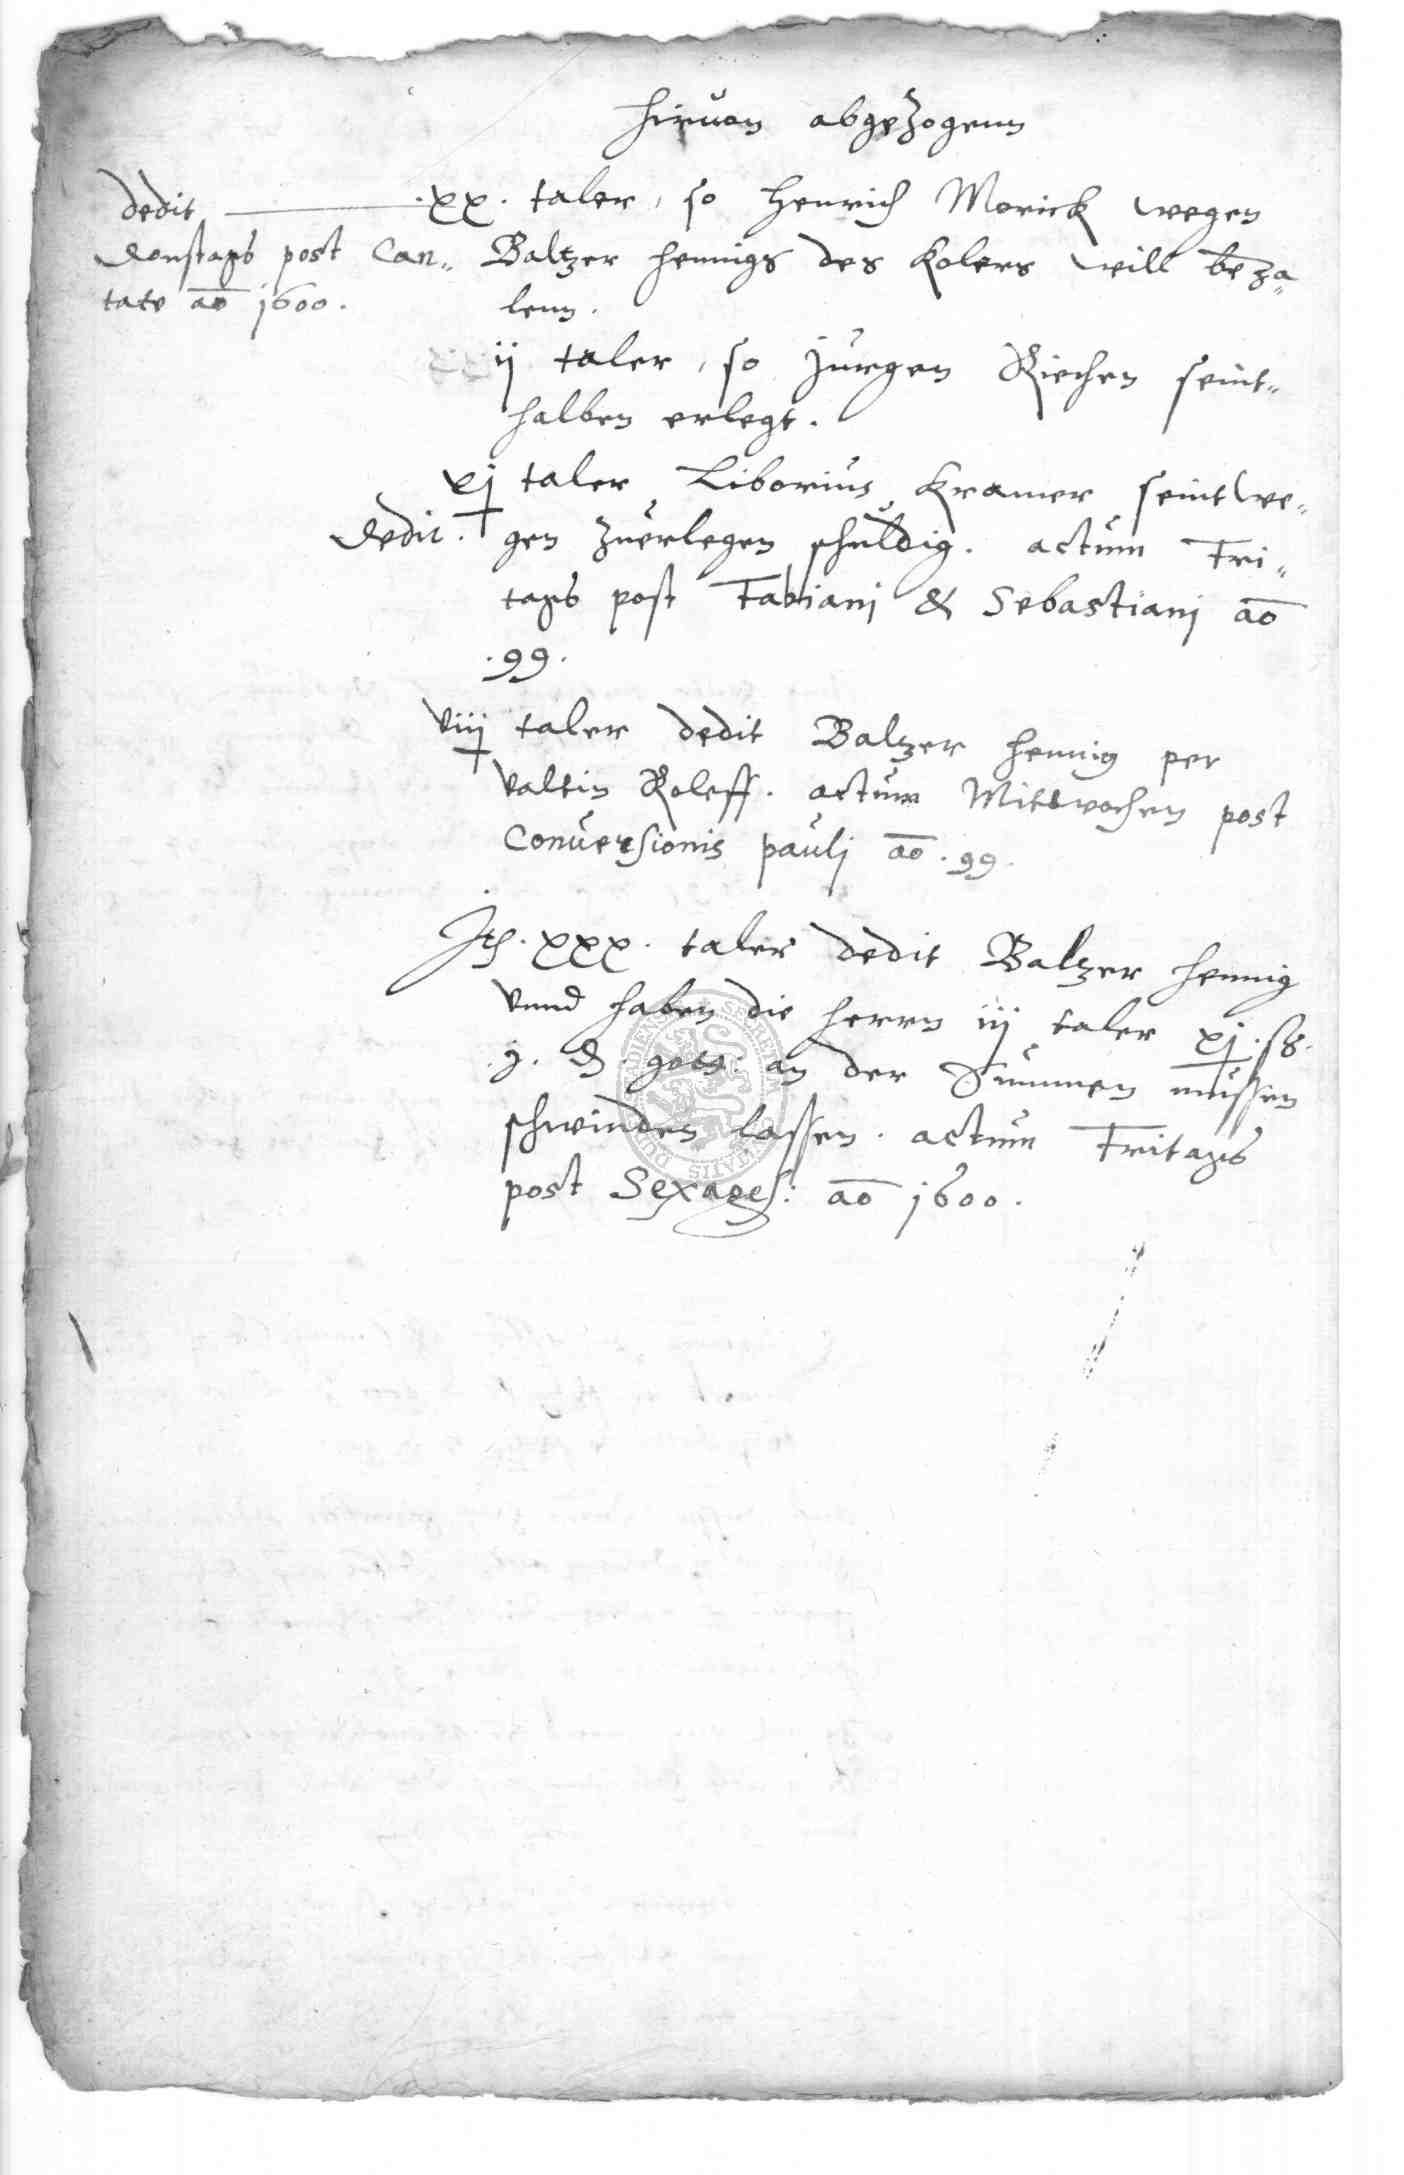 Hiruon abgezogenn
dedit
Donstags post Can„
tate ao 1600.
.xx. taler, so Henrich Morick wegen
Baltzer Hennigs des Kolers will beza„
lenn.
ij taler, so Jurgen Riechen seint„
halben erlegt.
xj taler Liborius Kramer seintwe„
dedit. gen zuerlegen schuldig. actum Fri„
tags post Fabianj & Sebastianj ao
.99.
viij taler dedit Baltzer Hennig per
Valtin Roleff. actum Mittwochen post
Conuersionis paulj ao .99.
It. xxx. taler dedit Baltzer Hennig
vnnd haben die Herrn iij taler xj. ß.
. j. d gots: an der Summen mussen
schwinden lassen. actum Fritags
post Sexages: ao 1600.